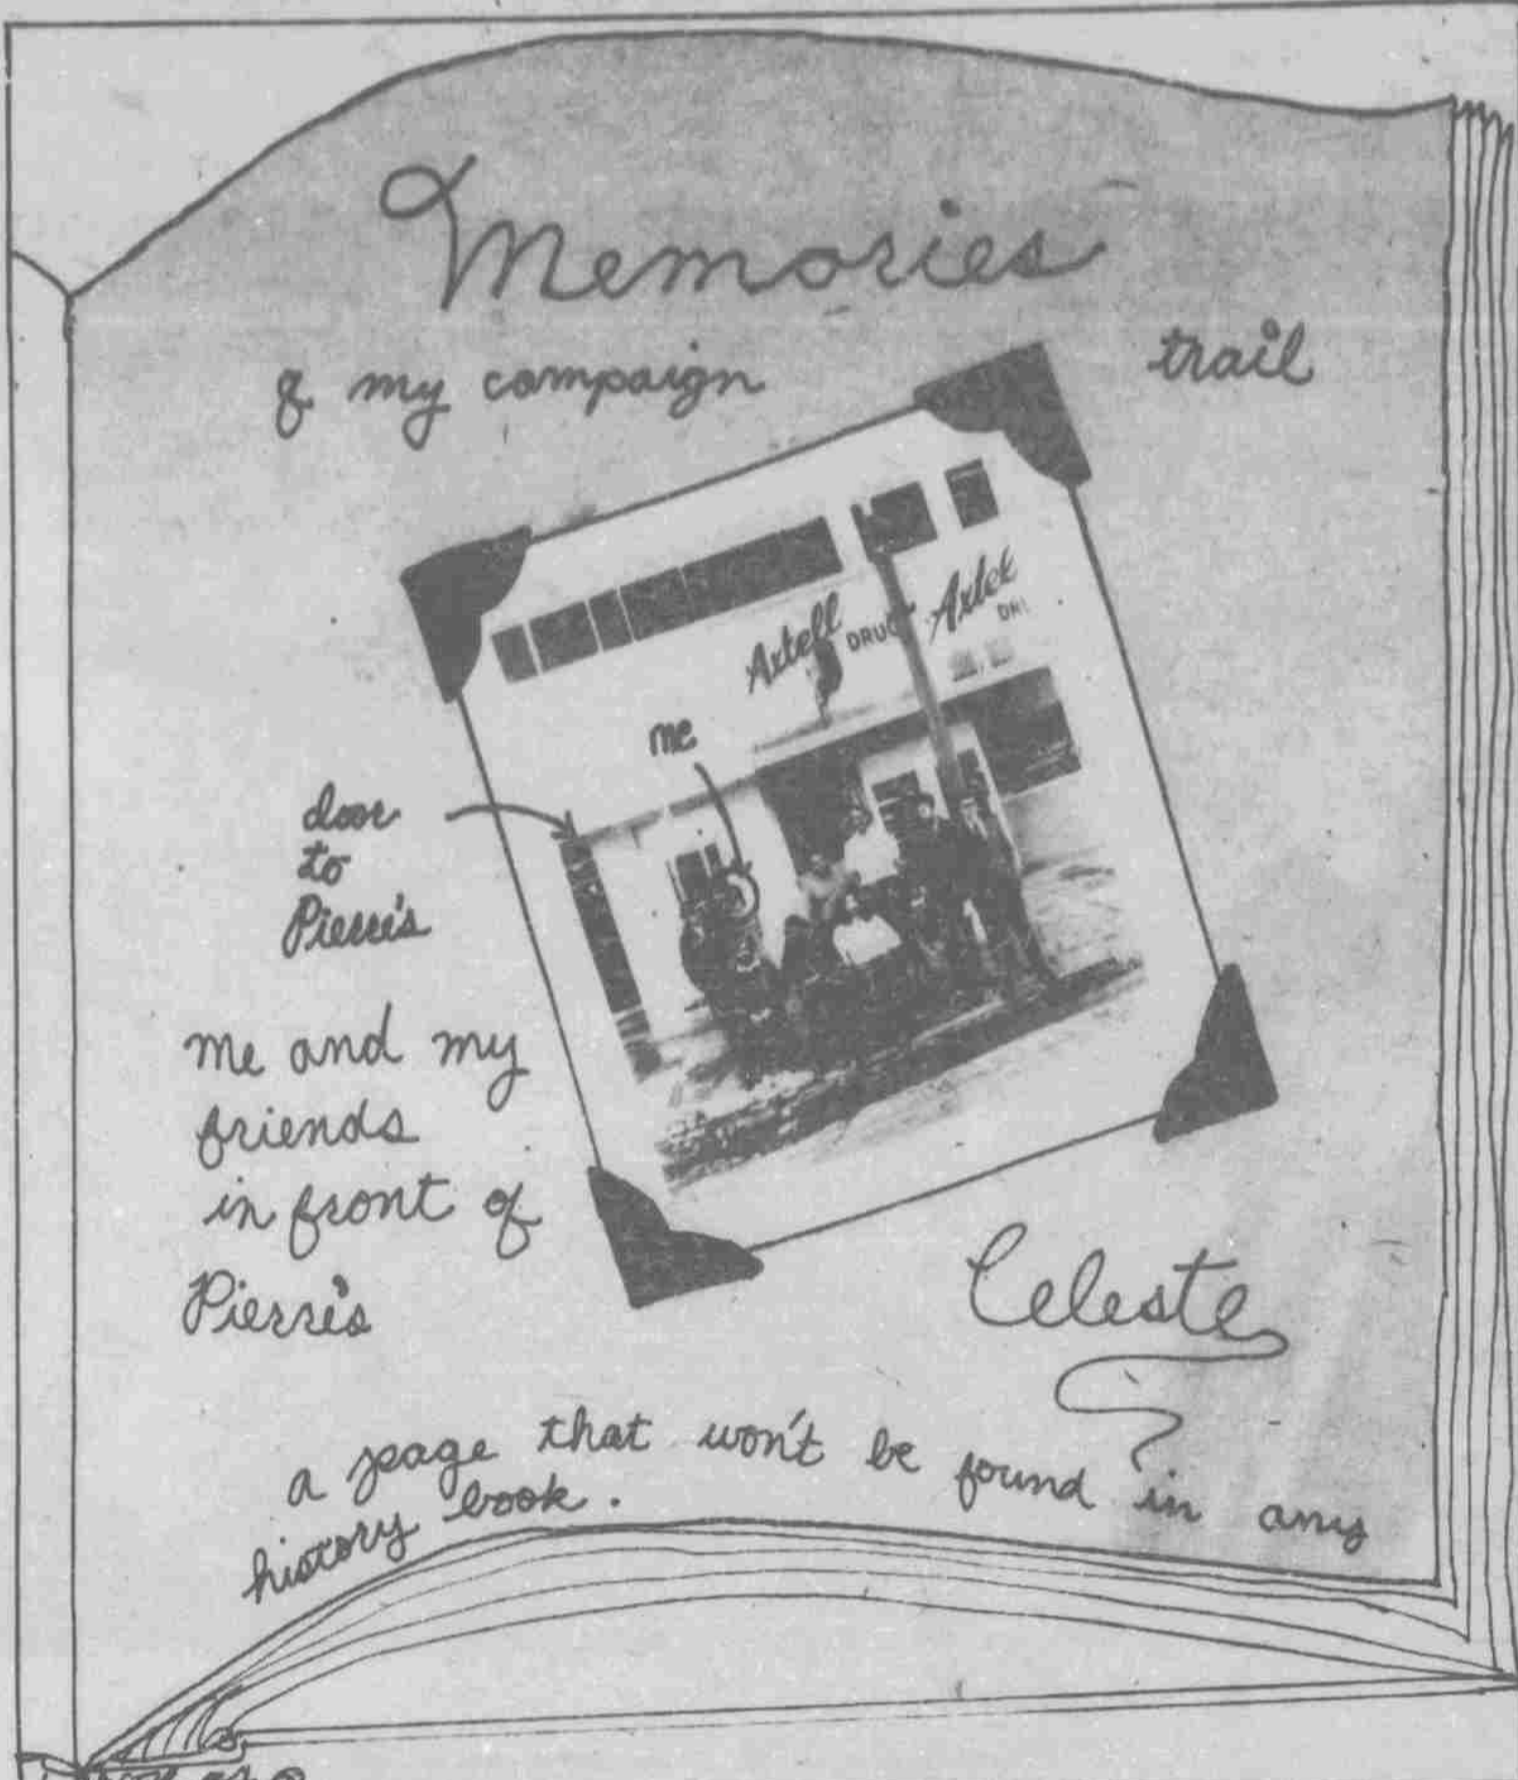 Memories
of my campaign trail
Artell DRUG Artel
DRU
me
door
to
Pierre's
me and my
friends
in front of
Pierre's
Celeste
a page that won't be found in any
history book.